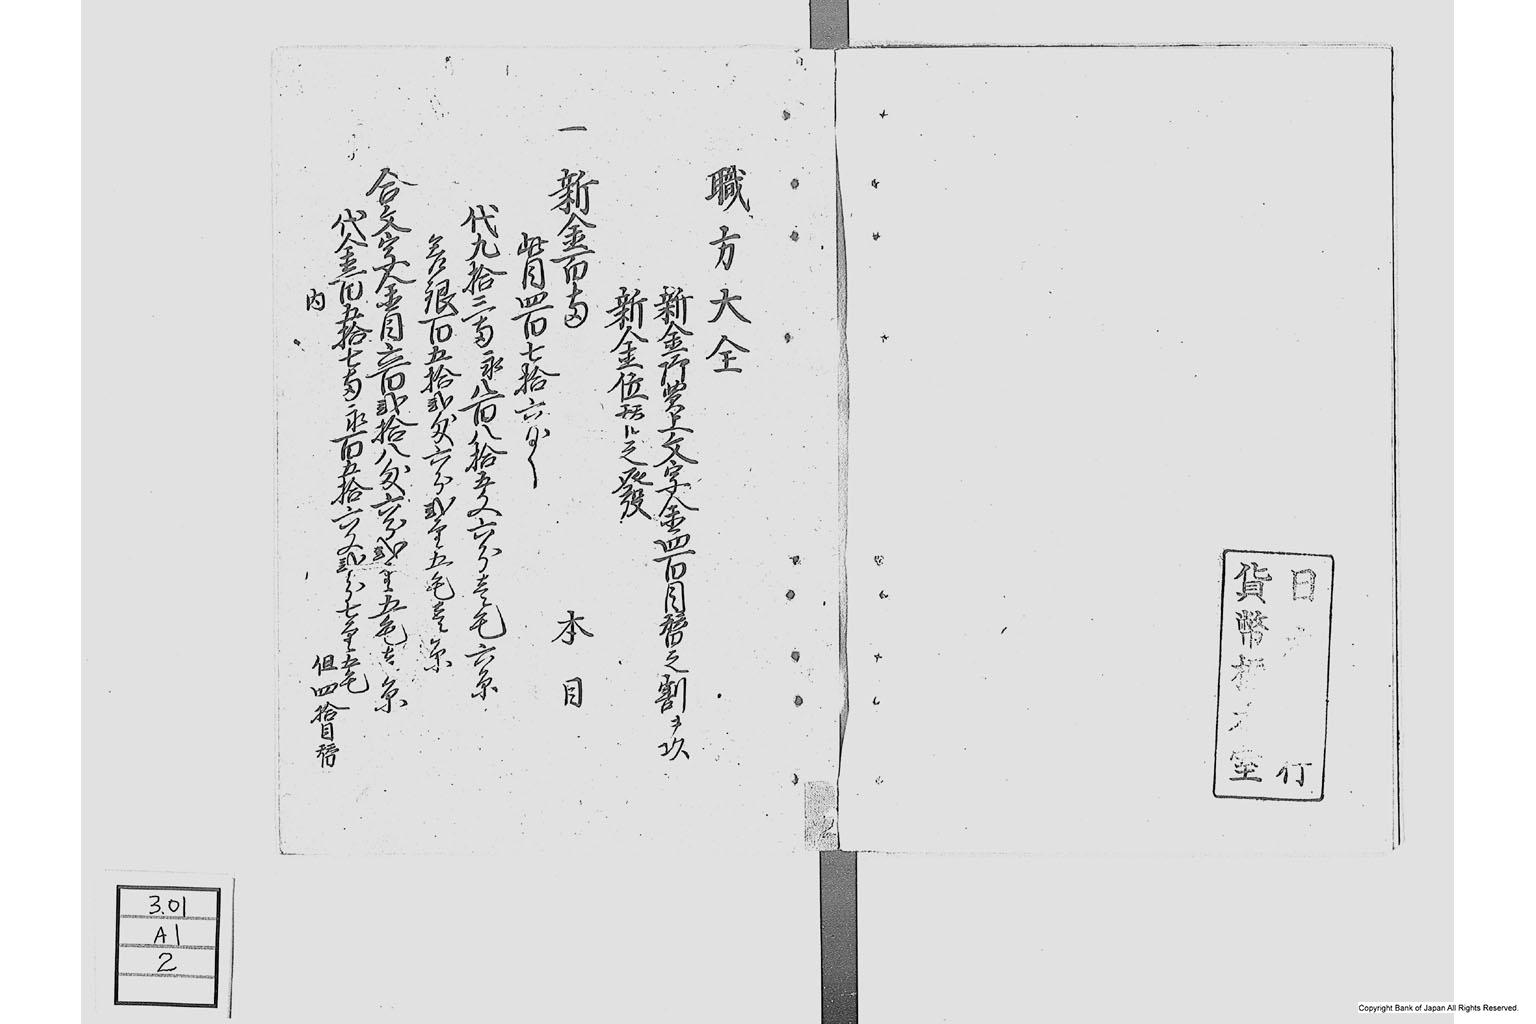 日 行
貨幣 室
職方大全
新金 買上文字金四百目替之割ヲ以
新金位 之
一 新金百両 本目
此目四百七拾六匁
代九拾三両永八百八拾五文六分壱毛六糸
銀百五拾弐匁六分弐厘五毛壱糸
合文字金目六百弐拾八匁六分弐厘五毛壱糸
代金百五拾七両永百五拾六文弐分七厘五毛
但四拾目替
内
3.01
A1
2
Copyright Bank of Japan All Rights Reserved.